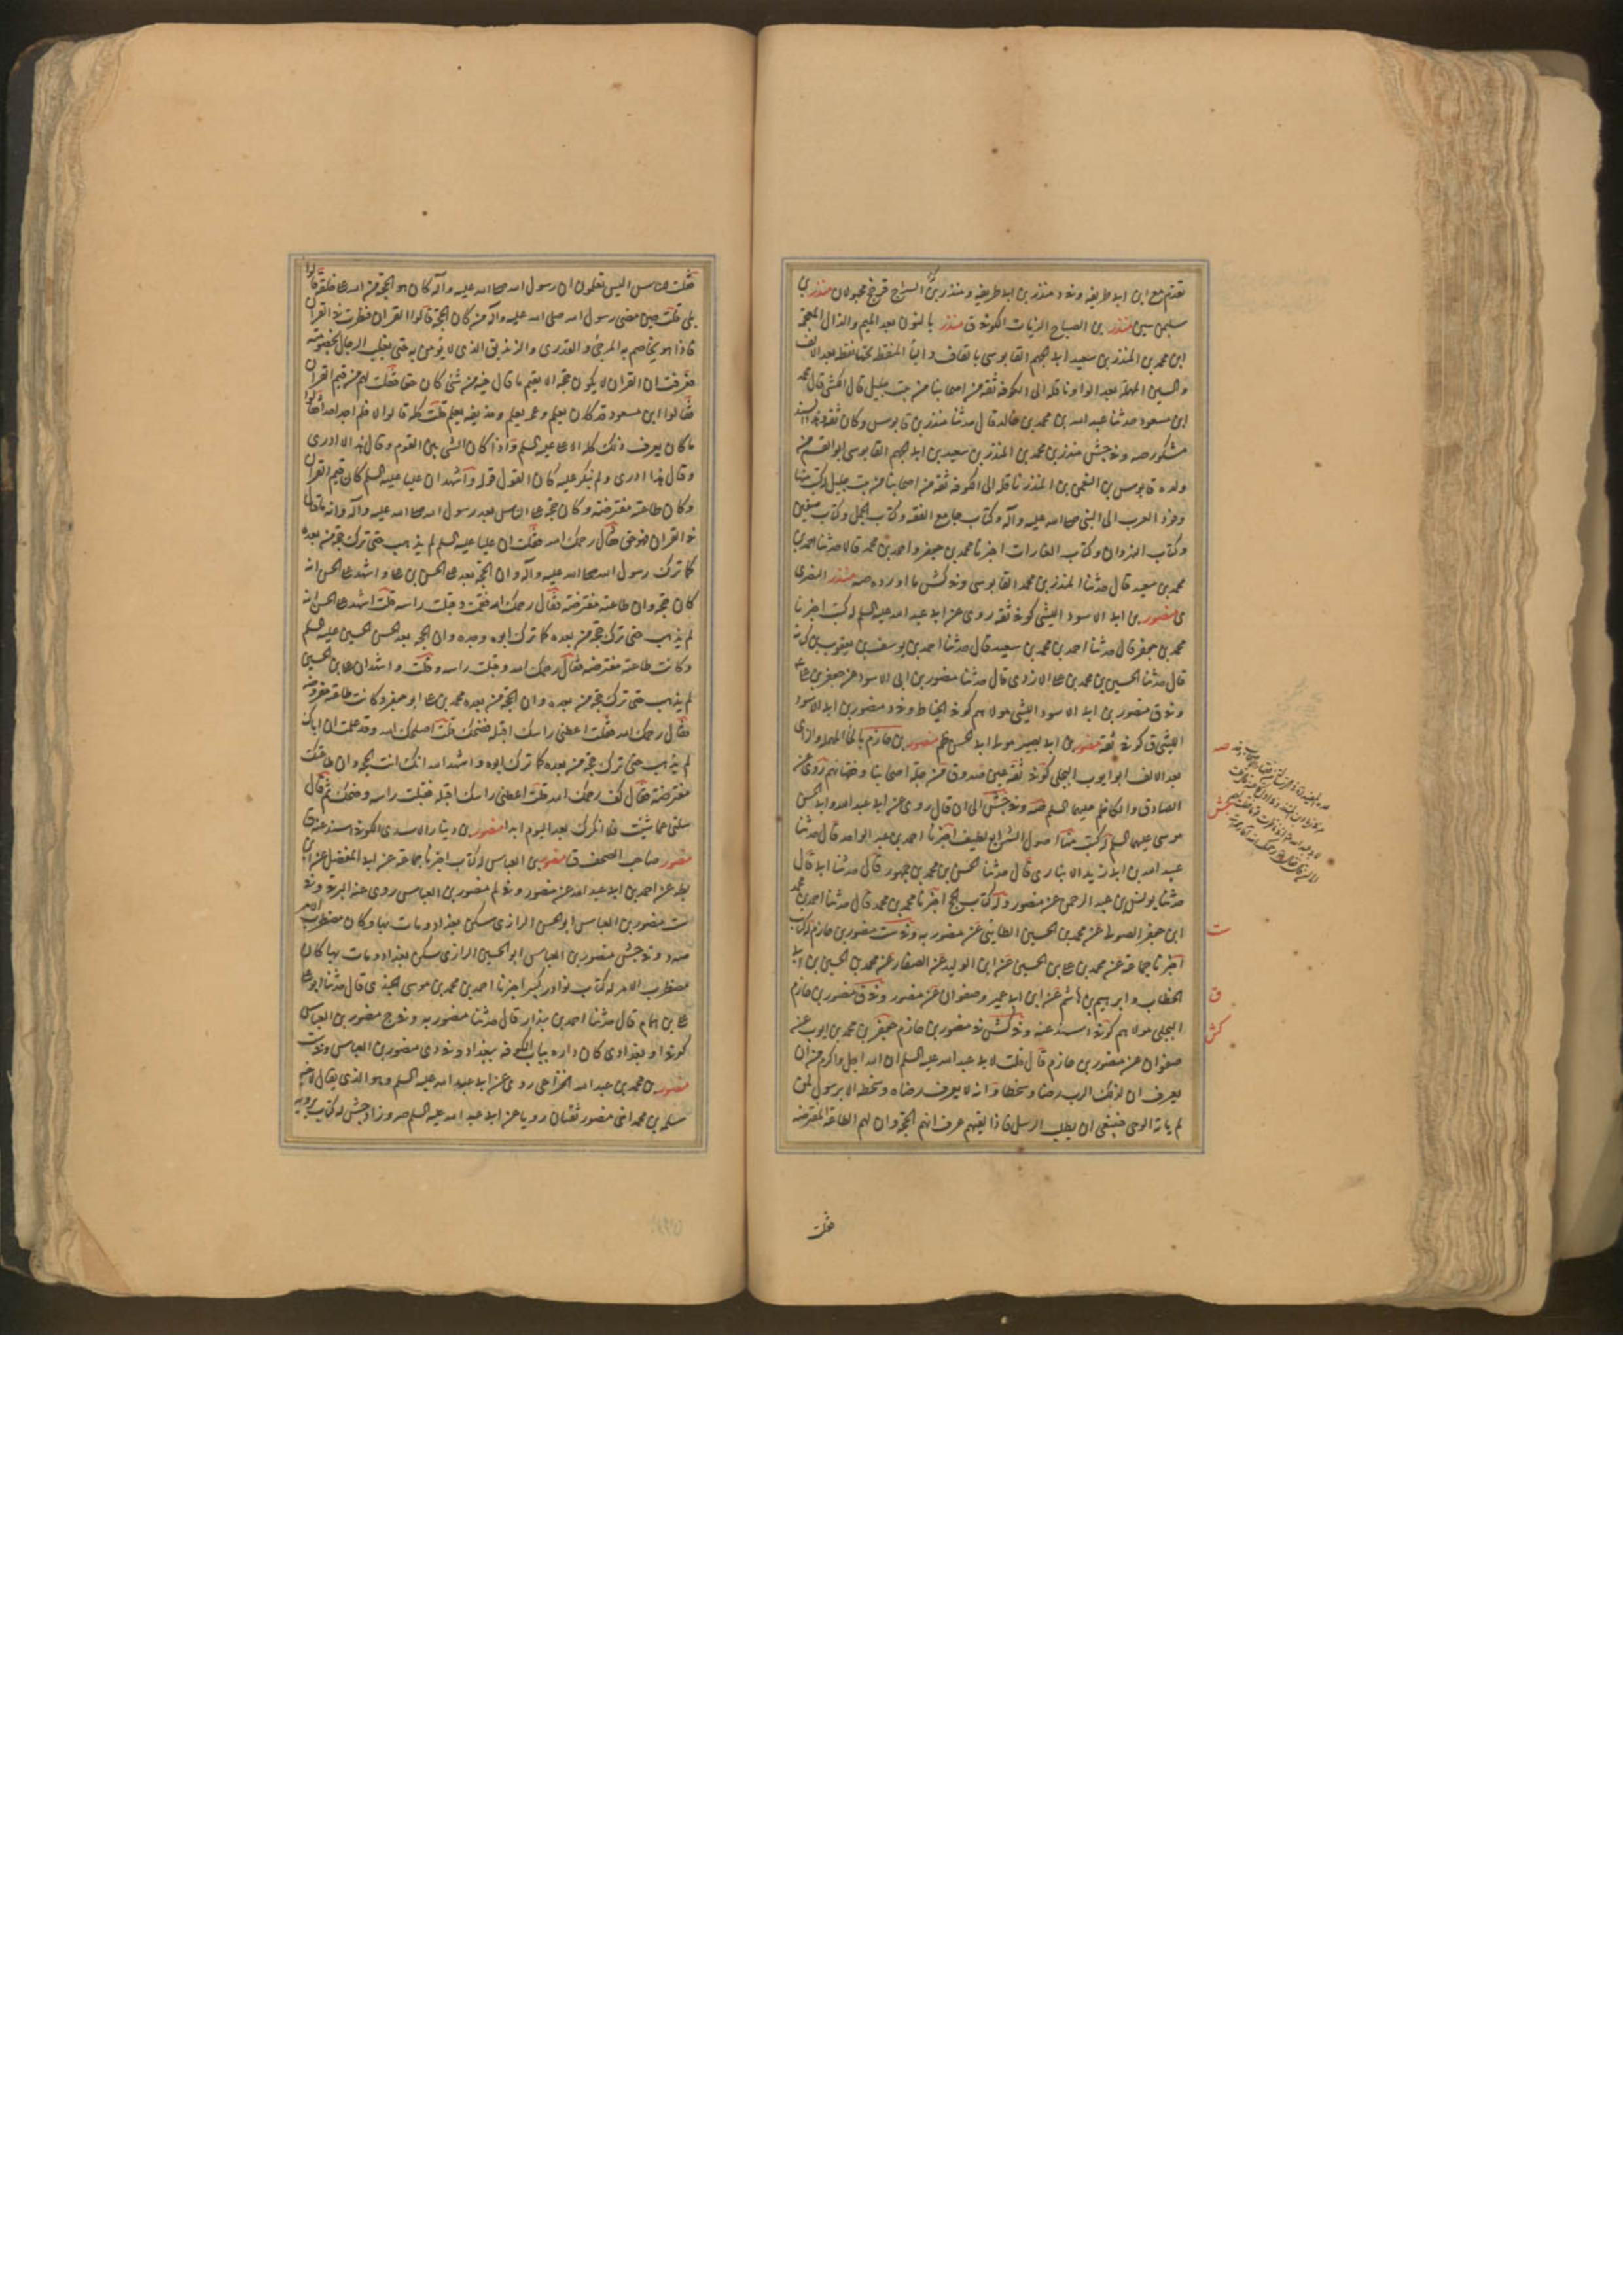 تقدم مع ابن ابي طريفه وفي د منذر بن ابي طريفه ومنذر بن السراج قر جخ مجهولان منذر بن
سليمن سين منذر بن الصباح الزيات الكوفي ق منذر بالنون بعد الميم والذال المعجمة
ابن محمد بن المنذر بن سعيد ابي الجهم القابوسي بالقاف والباء المنقطة تحتها نقطة بعد الالف
والسين المهملة بعد الواو ناقلة الى الكوفة ثقة من اصحابنا من بيت جليل قال الكشي قال محمد
ابن مسعود حدثنا عبد الله بن محمد بن خالد قال حدثنا منذر بن قابوس وكان ثقة وفي السند
مشكور صه وفي جش منذر بن محمد بن المنذر بن سعيد بن ابي الجهم القابوسي ابو القسم من
ولده قابوس بن النعمن بن المنذر ناقلة الى الكوفة ثقة من اصحابنا من بيت جليل له كتب منها
وفود العرب الى النبي صلى الله عليه وآله وكتاب جامع الفقه وكتاب الجمل وكتاب صفين
وكتاب النهروان وكتاب الغارات اخبرنا محمد بن جعفر واحمد بن محمد قالا حدثنا احمد بن
محمد بن سعيد قال حدثنا المنذر بن محمد القابوسي وفي كش ما اورده صه منذر النضرى
ى منصور بن ابي الاسود الليثي كوفي ثقة روى عن ابي عبد الله عليه السلم له كتب اخبرنا
محمد بن جعفر قال حدثنا احمد بن محمد بن سعيد قال حدثنا احمد بن يوسف بن يعقوب بن كتابه
قال حدثنا الحسين بن محمد بن على الازدى قال حدثنا منصور بن ابي الاسود عن جعفر بن على
وفي ق منصور بن ابي الاسود الليثي مولاهم كوفي الخياط وفي د منصور بن ابي الاسود
الليثي ق كوفي ثقة منصور بن ابي بصير مولى ابي الحسن عم منصور بن حازم بالحاء المهملة والزاى
بعد الالف ابو ايوب البجلى كوفي ثقة عين صدوق من جلة اصحابنا وفقهائهم روى عن
الصادق والكاظم عليهما السلم صه وفي جش الى ان قال روى عن ابي عبد الله وابي الحسن
موسى عليهما السلم له كتب منها اصول الشرايع لطيف اخبرنا احمد بن عبد الواحد قال حدثنا
عبيد الله بن ابي زيد الانبارى قال حدثنا الحسن بن محمد بن جمهور قال حدثنا ابي قال
حدثنا يونس بن عبد الرحمن عن منصور وله كتاب الحج اخبرنا محمد بن محمد قال حدثنا احمد بن محمد
ابن جعفر الصولى عن محمد بن الحسين الطائى عن منصور به وفي ست منصور بن حازم له كتاب
اخبرنا جماعة عن محمد بن على بن الحسين عن ابن الوليد عن الصفار عن محمد بن الحسين بن ابي
الخطاب وابرهيم بن هاشم عن ابن ابي عمير وصفوان عن منصور وفي ق منصور بن حازم
البجلى مولاهم كوفي اسند عنه وفي كش في منصور بن حازم جعفر بن محمد بن ايوب عن
صفوان عن منصور بن حازم قال قلت لابي عبد الله عليه السلم ان الله اجل واكرم من ان
يعرف ان لذلك الرب رضا وسخطا وانه لا يعرف رضاه وسخطه الا برسول لمن
لم ياته الوحى فينبغى ان يطلب الرسل فاذا لقيهم عرف انهم الحجة وان لهم الطاعة المفترضة
فقلت
صه
جش
ت
ق
كش
فقلت للناس اليس تعلمون ان رسول الله صلى الله عليه وآله كان هو الحجة من الله على خلقه قالوا
بلى قلت حين مضى رسول الله صلى الله عليه وآله من كان الحجة قالوا القران فنظرت في القران
فاذا هو يخاصم به المرجئ والقدرى والزنديق الذى لا يؤمن به حتى يغلب الرجال بخصومته
فعرفت ان القران لا يكون حجة الا بقيم ما قال فيه من شئ كان حقا فقلت لهم من قيم القران
فقالوا ابن مسعود قد كان يعلم وعمر يعلم وحذيفه يعلم قلت كله قالوا لا فلم اجد احدا قالوا
ما كان يعرف ذلك كله الا على عليه السلم واذا كان الشئ بين القوم وقال هذا لا ادرى
وقال هذا ادرى ولم ينكر عليه كان القول قوله واشهد ان عليا عليه السلم كان قيم القران
وكان طاعته مفترضة وكان حجة على الناس بعد رسول الله صلى الله عليه وآله وانه ما قال
في القران فهو حق فقال رحمك الله فقلت ان عليا عليه السلم لم يذهب حتى ترك حجة من بعده
كما ترك رسول الله صلى الله عليه وآله وان الحجة بعد على الحسن بن على واشهد على الحسن انه
كان حجة وان طاعته مفترضة فقال رحمك الله فقمت وقبلت راسه قلت اشهد على الحسن انه
لم يذهب حتى ترك حجة من بعده كما ترك ابوه وجده وان الحجة بعد الحسن الحسين عليه السلم
وكانت طاعته مفترضة فقال رحمك الله وقبلت راسه وقلت واشهد ان على بن الحسين
لم يذهب حتى ترك حجة من بعده وان الحجة من بعده محمد بن على ابو جعفر وكانت طاعته مفروضة
فقال رحمك الله فقلت اعطنى راسك اقبله فضحك قلت اصلحك الله وقد علمت ان اباك
لم يذهب حتى ترك حجة من بعده كما ترك ابوه واشهد الله انك انت الحجة وان طاعتك
مفترضة فقال كف رحمك الله قلت اعطنى راسك اقبله فقبلت راسه وضحك ثم قال
سلنى عما شئت فلا انكرك بعد اليوم ابدا منصور بن دينار الاسدى الكوفي اسند عنه ق
منصور صاحب الصحف ق منصور بن العباس له كتاب اخبرنا جماعة عن ابي المفضل عن ابن
بطه عن احمد بن ابي عبد الله عن منصور وفي لم منصور بن العباس روى عنه البرقى وفي
ست منصور بن العباس ابو الحسن الرازى سكن بغداد ومات بها وكان مضطرب الامر
صه د وفي جش منصور بن العباس ابو الحسين الرازى سكن بغداد ومات بها كان
مضطرب الامر له كتاب نوادر كبير اخبرنا احمد بن محمد بن موسى الجندى قال حدثنا ابو على
على بن همام قال حدثنا احمد بن بندار قال حدثنا منصور به وفي ج منصور بن العباس
كوفي او بغدادى كان داره بباب الكوفه ببغداد وفي دى منصور بن العباس وفي ست
منصور بن محمد بن عبد الله الخزاعى روى عن ابي عبد الله عليه السلم وهو الذى يقال لاخيه
سلمه بن محمد اخى منصور ثقتان رويا عن ابي عبد الله عليه السلم صه وزاد جش له كتاب يرويه